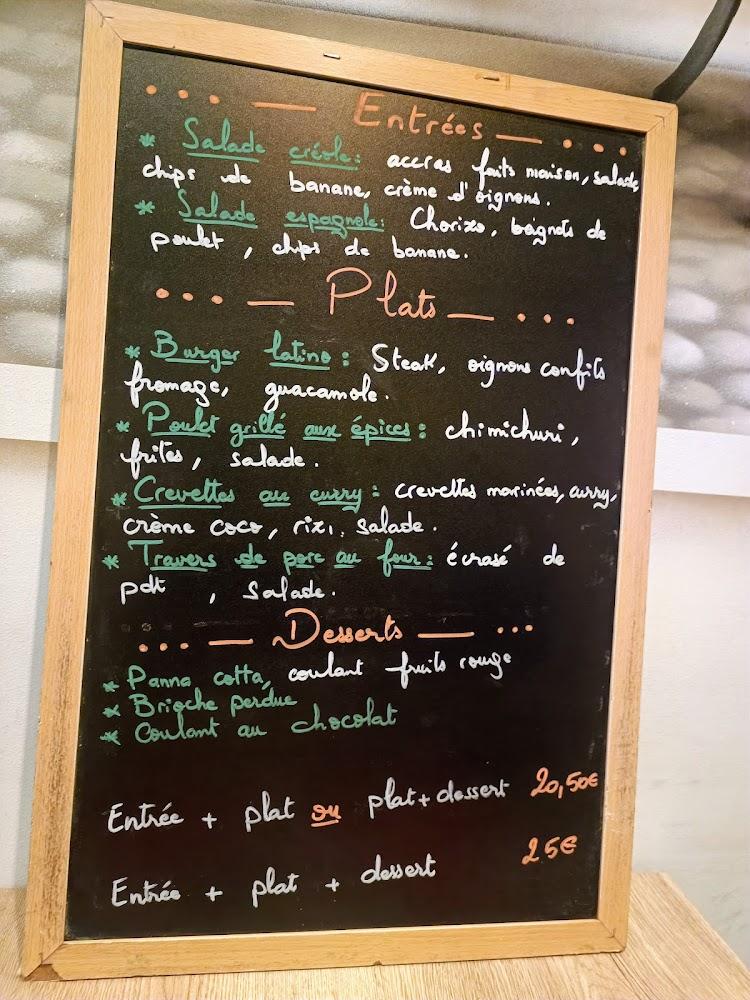 ... — Entrées — ...
* Salade créole: accras faits maison, salade,
chips de banane, crème d'oignons.
* Salade espagnole: Chorizo, beignets de
poulet, chips de banane.
... — Plats — ...
* Burger latino: Steak, oignons confits
fromage, guacamole.
* Poulet grillé aux épices: chimichuri,
frites, salade.
* Crevettes au curry: crevettes marinées, curry,
crème coco, riz, salade.
* Travers de porc au four: écrasé de
pdt, salade.
... — Desserts — ...
* Panna cotta, coulant fruits rouge
* Brioche perdue
* Coulant au chocolat
Entrée + plat ou plat + dessert 20,50€
Entrée + plat + dessert 25€